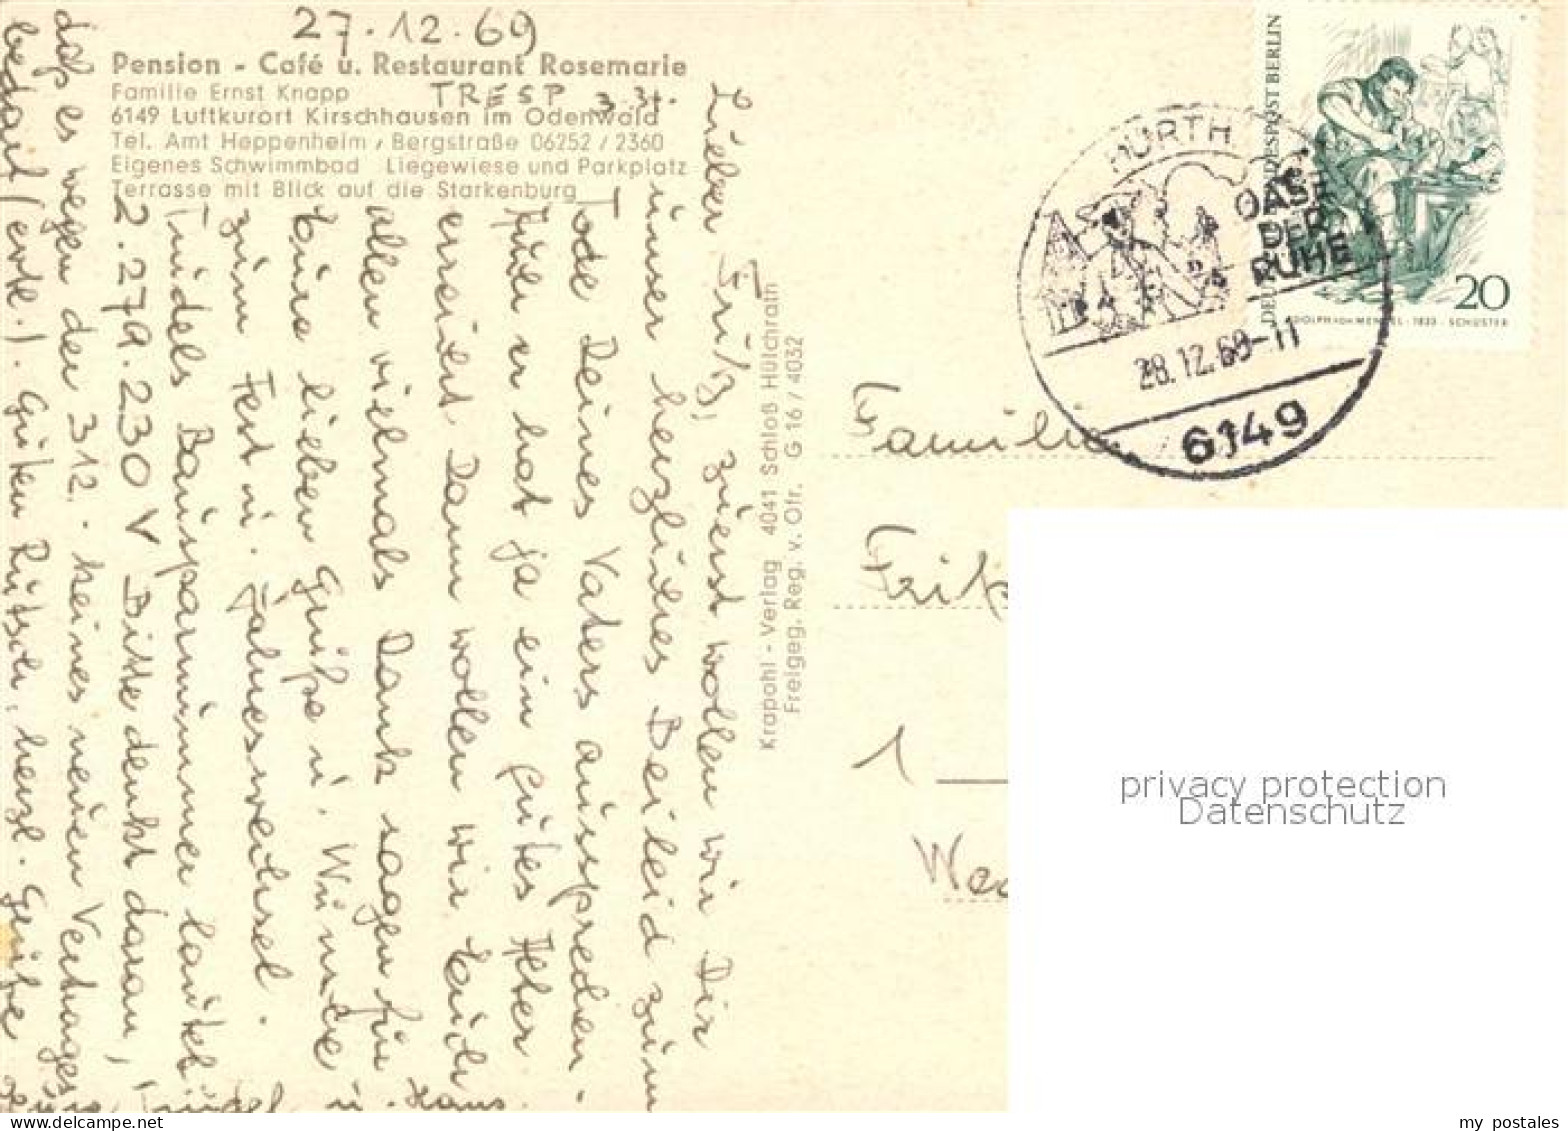 27.12.69
Pension - Café u. Restaurant Rosemarie
Familie Ernst Knapp
TRESP z.Zt.
6149 Luftkurort Kirschhausen im Odenwald
Tel. Amt Heppenheim, Bergstraße 06252 / 2360
Eigenes Schwimmbad Liegewiese und Parkplatz
Terrasse mit Blick auf die Starkenburg
Lieber Fritz, zuerst wollen wir Dir
unser herzliches Beileid zum
Tode Deines Vaters aussprechen.
er hat ja ein gutes Alter
erreicht. Dann wollen wir Euch
allen vielmals Dank sagen für
Eure lieben Grüße u. Wünsche
zum Fest u. Jahreswechsel.
Trudels Bausparnummer lautet
2.279.230 V Bitte denkt daran,
daß es wegen der 312.- keines neuen Vertrages
bedarf (evtl.). Guten Rutsch, herzl. Grüße
Trudel u. Hans
Krapohl - Verlag 4041 Schloß Hülchrath
Freigeg. Reg. v. Ofr. G 16 / 4032
DEUTSCHE BUNDESPOST BERLIN
20
ADOLPH VON MENZEL · 1833 · SCHUSTER
FÜRTH
OASE
DER
RUHE
28.12.69-11
6149
Familie
Fritz
1
privacy protection
Datenschutz
my postales